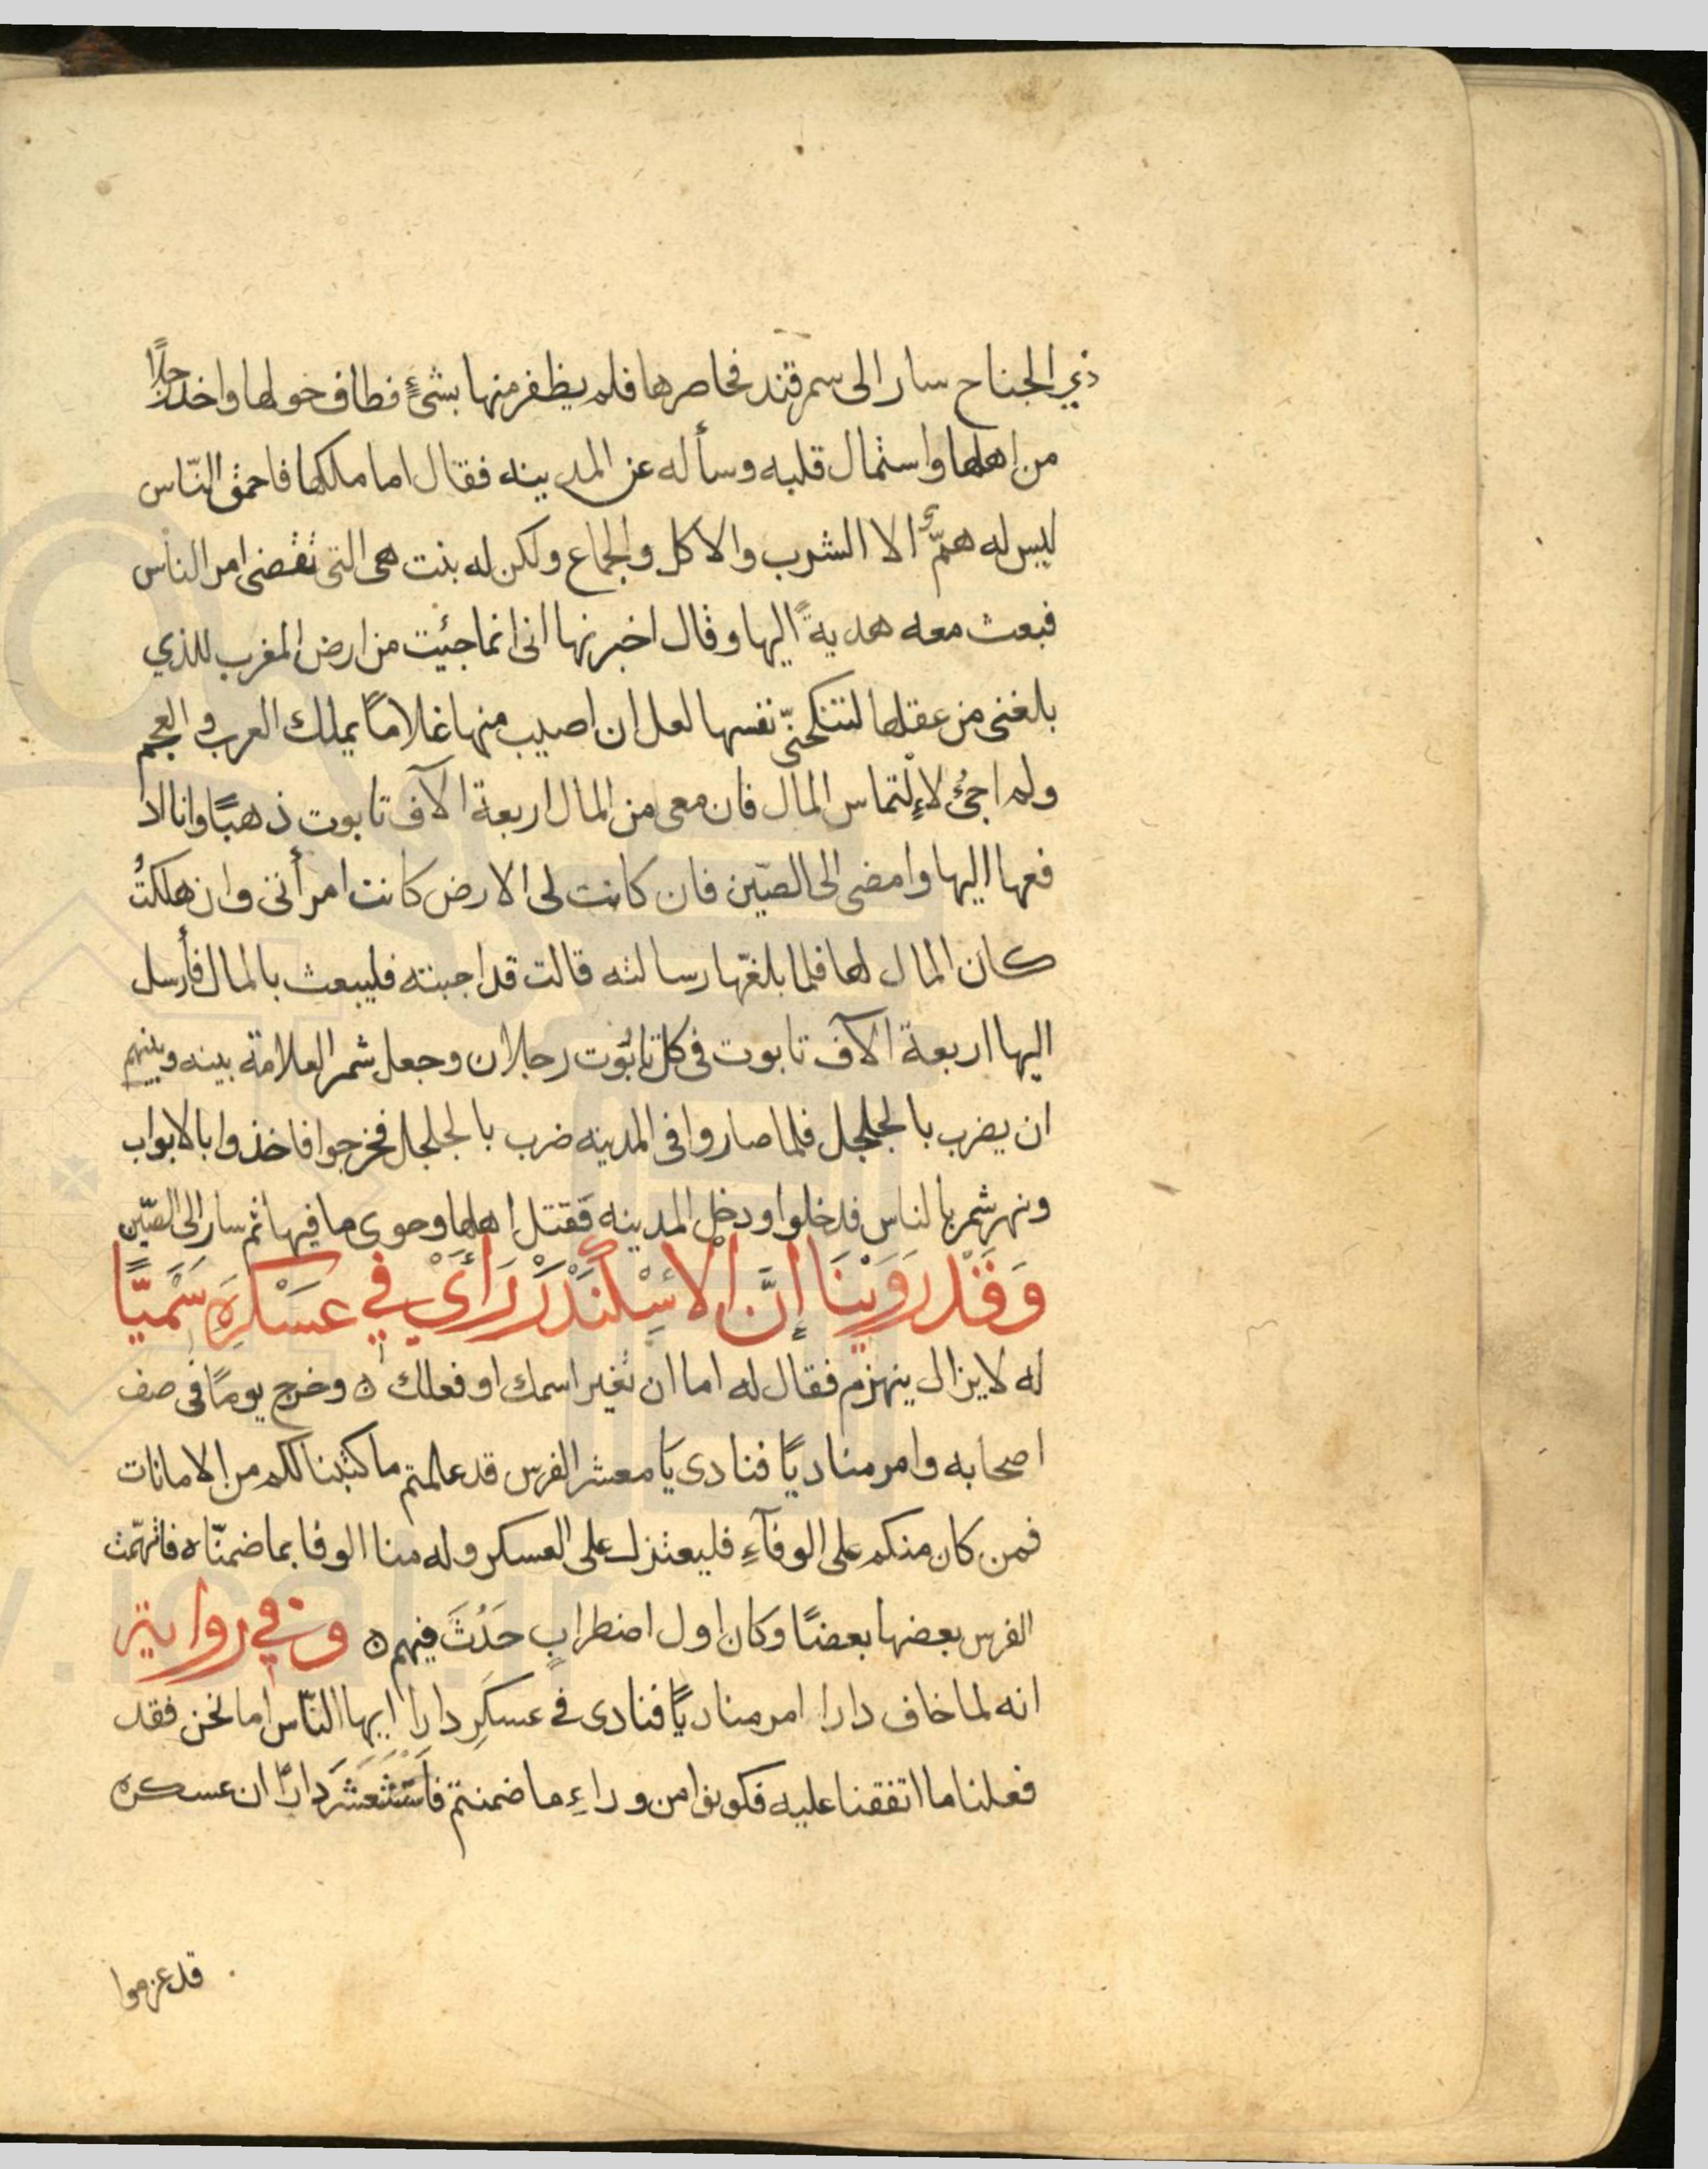 ذي الجناح سار الى سمرقند فحاصرها فلم يظفر منها بشئٍ فطاف حولها واخذ رجلًا
من اهلها واستمال قلبه وسأله عن المدينه فقال اما ملكها فاحمق النّاس
ليس له همٌّ الا الشرب والاكل والجماع ولكن له بنت هى التى تقضى امر الناس
فبعث معه هديةً اليها وقال اخبرنها انى انما جئيت من ارض المغرب للذي
بلغنى من عقلها لتنكحنّى نفسها لعل ان اصيب منها غلامًا يملك العرب والعجم
ولم اجئْ لاِلْتماس المال فان معى من المال اربعة الآف تابوت ذهبًا وانا اد
فعها اليها وامضى الى الصّين فان كانت لى الارض كانت امرأتى وان هلكتُ
كان المال لها فلما بلغتها رسالته قالت قد اجبته فليبعث بالمال فأرسل
اليها اربعة الآف تابوت فى كل تابُوت رجلان وجعل شمر العلامة بينه وبينهم
ان يضرب بالجلجل فلما صاروا فى المدينه ضرب بالجلجل فخرجوا فاخذوا بالابواب
ونهر شمر بالناس فدخلوا ودخل المدينه فقتل اهلها وحوى ما فيها ثم سار الى الصّين
وَقَدْ رَوَيْنَا اِنَّ الاسْكَنْدَرْ رَاَىْ فِي عَسْكَرِهِ سَمَيًّا
له لا يزال ينهزم فقال له اما ان تغير اسمك او فعلك ٥ وخرج يومًا فى صف
اصحابه وامر مناديًا فنادى يَا معشر الفرس قد علمتم ما كتبنا لكم من الامانات
فمن كان منكم على الوفآءِ فليعتزل على العسكر وله منا الوفا بما ضمنّاه فاتهمّت
الفرس بعضها بعضًا وكان اول اضطرابٍ حَدَثَ فيهم ٥ وَفي رواية
انه لما خاف دارا امر مناديًا فنادى فى عسكَرِ دارا ايها النّاس اما نحن فقد
فعلنا ما اتفقنا عليه فكونوا من وراءِ ما ضمنتم فَاسْتَشْعَرَ دارًا ان عسكره
قد عزموا